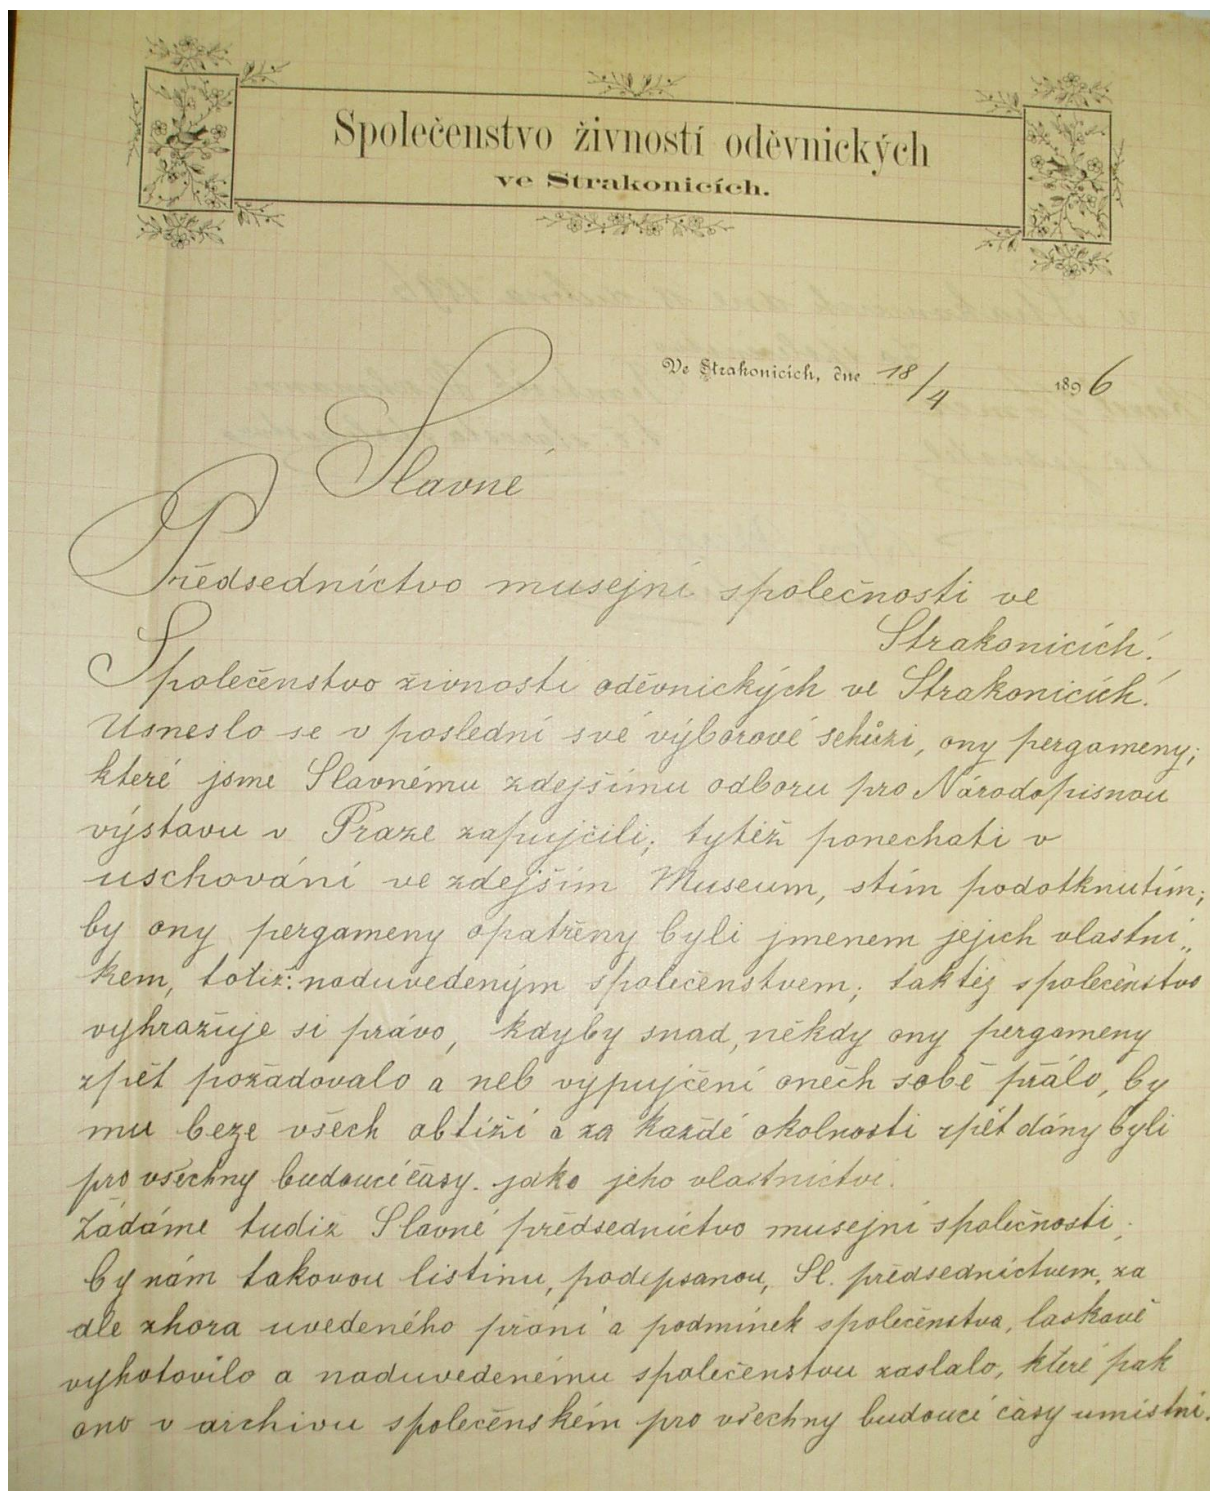 Společenstvo živností oděvnických
ve Strakonicích.
Ve Strakonicích, dne 18/4 1896
Slavné
Předsednictvo musejní společnosti ve
Strakonicích!
Společenstvo živností oděvnických ve Strakonicích!
Usneslo se v poslední své výborové schůzi, ony pergameny;
které jsme Slavnému zdejšímu odboru pro Národopisnou
výstavu v Praze zapujčili; tytéž ponechati v
uschování ve zdejším Museum, stím podotknutím;
by ony pergameny opatřeny byli jmenem jejich vlastní„
kem, totiž: naduvedeným společenstvem; taktéž společenstvo
vyhražuje si právo, kdyby snad, někdy ony pergameny
zpět požadovalo a neb vypujčení oněch sobě přálo, by
mu beze všech obtíží a za každé okolnosti zpět dány byli
pro všechny budoucí časy. jako jeho vlastnictví.
Žádáme tudiž Slavné předsednictvo musejní společnosti;
by nám takovou listinu, podepsanou, Sl. předsednictvem, za
dle zhora uvedeného přání a podmínek společenstva, laskavě
vyhotovilo a naduvedenému společenstvu zaslalo, které pak
ono v archivu společenském pro všechny budoucí časy umístní.